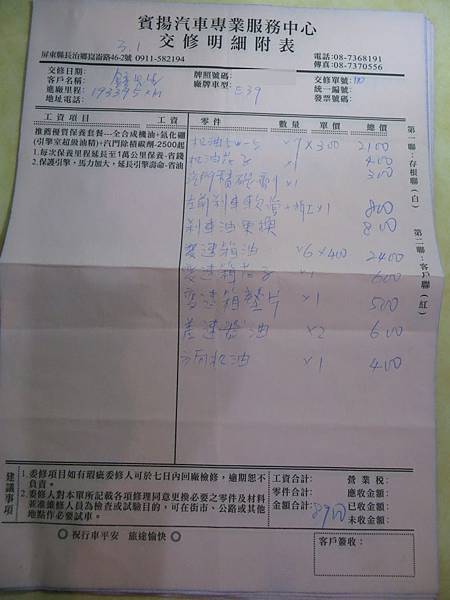 賓揚汽車專業服務中心
交修明細附表
屏東縣長治鄉崑崙路46-2號 0911-582194
電話:08-7368191
傳真:08-7370556
交修日期: 3.1
牌照號碼:
交修單號:
客戶名稱:
廠牌車型: E39
統一編號:
進廠里程: 193395km
發票號碼:
地址電話:
工資項目
零件 數量 單價 總價
推薦優質保養套餐---全合成機油+氮化硼
(引擎室超級油精)+汽門除積碳劑-2500起
1.每次保養里程延長至1萬公里保養-省錢
2.保護引擎,馬力加大,延長引擎壽命-省油
机油5w-50 x7 x300 2100
机油芯子 x1 400
汽門積碳劑 x1 300
左前刹車軟管+拆工x1 800
刹車油更換 800
変速箱油 x6 x400 2400
変速箱芯子 x1 600
変速箱墊片 x1 500
差速器油 x2 600
方向机油 x1 400
第一聯:存根聯(白)
第二聯:客戶聯(紅)
建議事項
1.委修項目如有瑕疵委修人可於七日內回廠檢修,逾期恕不
負責。
2.委修人對本單所記載各項修理同意更換必要之零件及材料
並准維修人員為檢查或試驗目的,可在街市、公路或其他
地點作必要試車。
工資合計:
營業稅:
零件合計:
應收金額:
金額合計: 8900
已收金額:
未收金額:
◎ 祝行車平安 旅途愉快 ◎
客戶簽收: